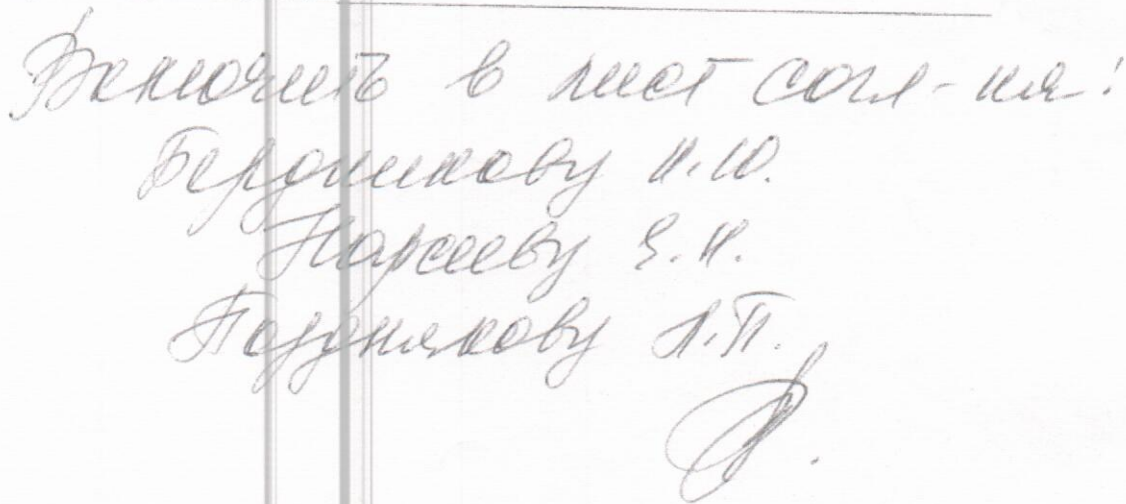 Включить в лист согл-ия:
Бердникову И.Ю.
Карееву Э.Н.
Позднякову А.П.